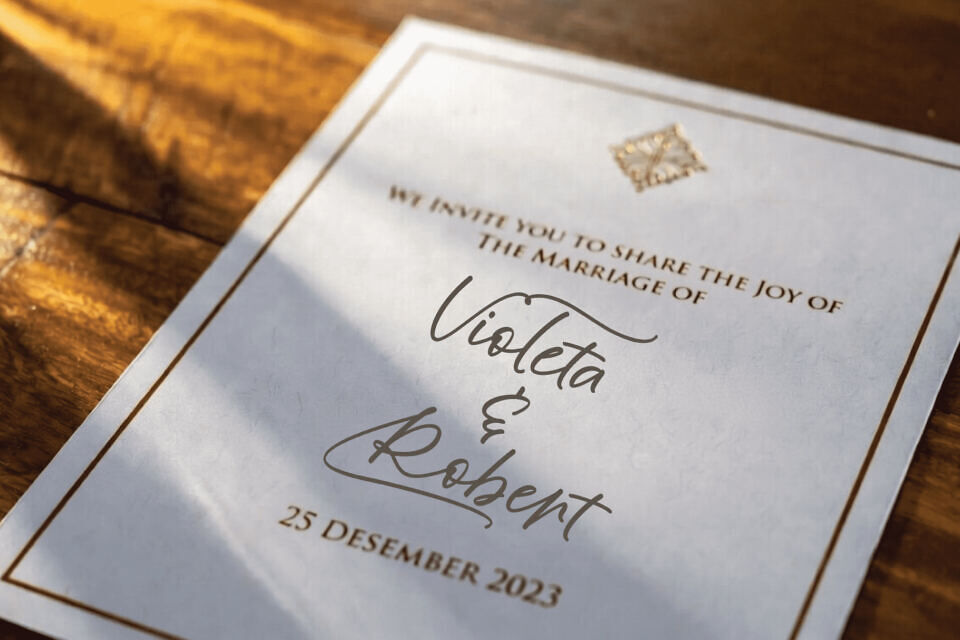 We Invite you to share the Joy of
The marriage of
Violeta
&
Robert
25 Desember 2023